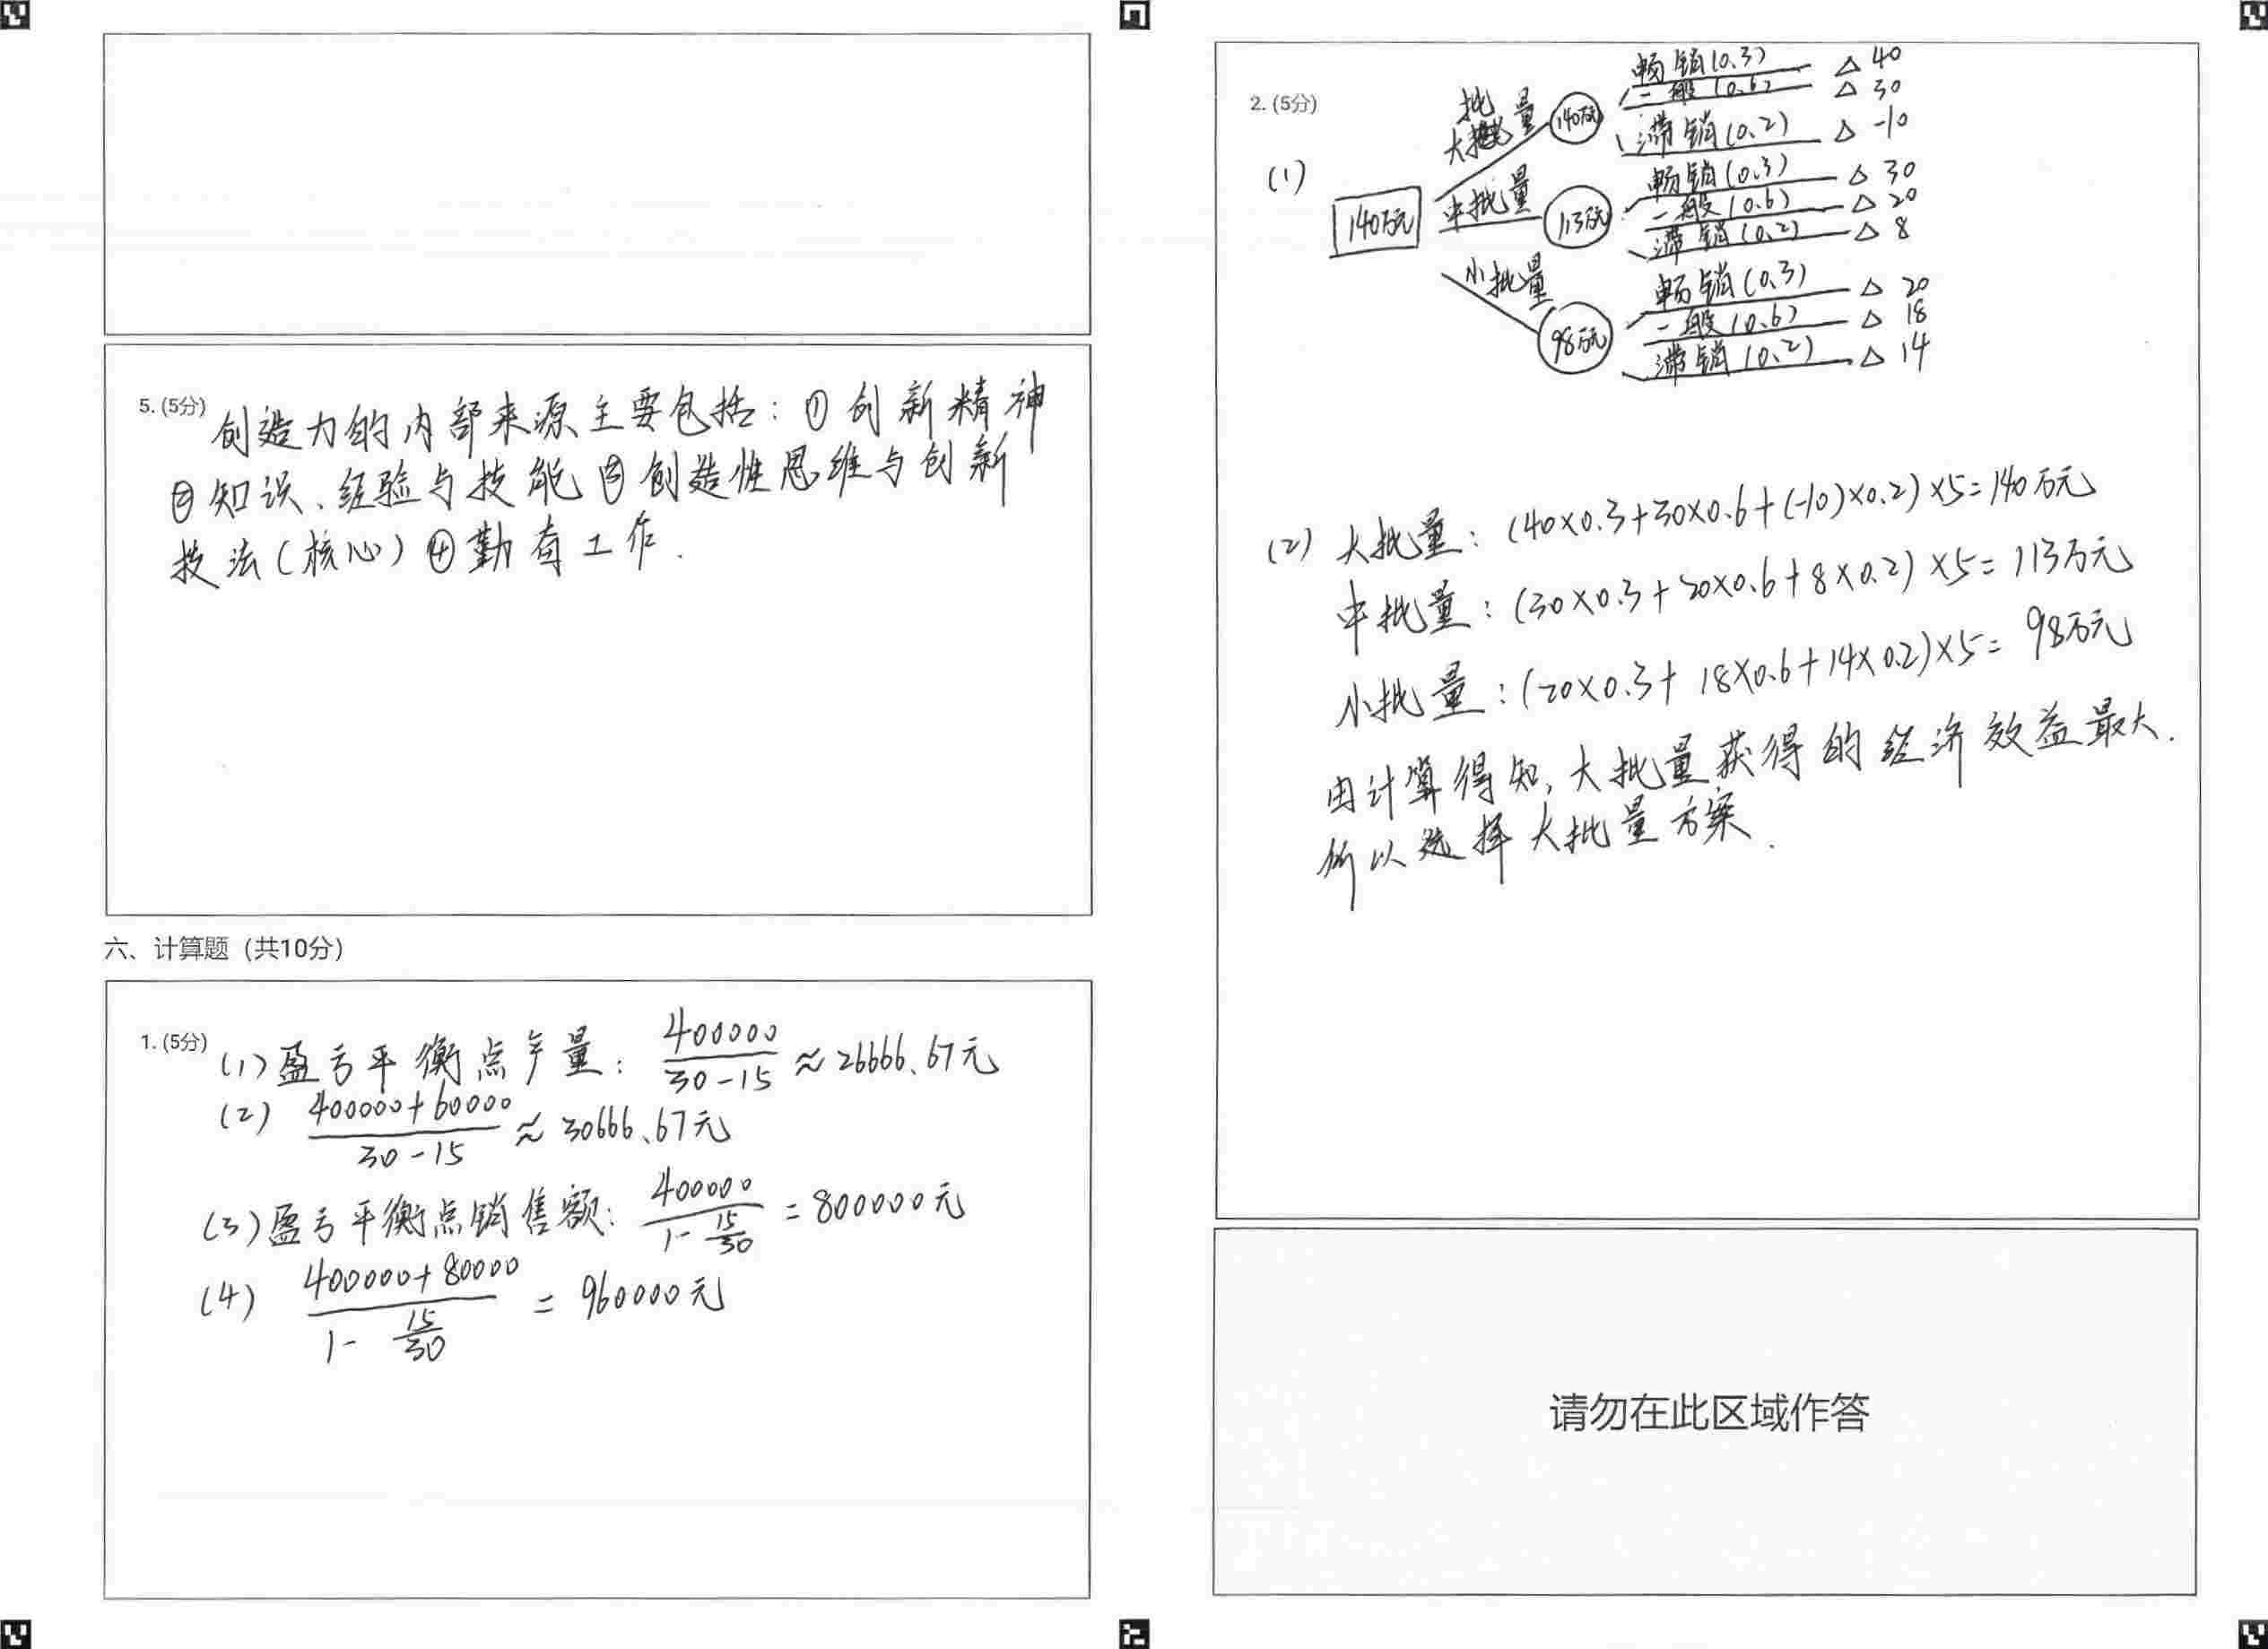 5. (5分) 创造力的内部来源主要包括：① 创新精神
② 知识、经验与技能 ③ 创造性思维与创新
技法（核心）④ 勤奋工作.
六、计算题（共10分）
1. (5分) (1) 盈亏平衡点产量： 400000/(30-15) ≈ 26666.67元
(2) (400000+60000)/(30-15) ≈ 30666.67元
(3) 盈亏平衡点销售额： 400000/(1-15/30) = 800000元
(4) (400000+80000)/(1-15/30) = 960000元
2. (5分)
(1)
140万元
大批量 140万元
畅销(0.3) △ 40
一般(0.6) △ 30
滞销(0.2) △ -10
中批量 113万元
畅销(0.3) △ 30
一般(0.6) △ 20
滞销(0.2) △ 8
小批量 98万元
畅销(0.3) △ 20
一般(0.6) △ 18
滞销(0.2) △ 14
(2) 大批量：(40×0.3+30×0.6+(-10)×0.2)×5=140万元
中批量：(30×0.3+20×0.6+8×0.2)×5=113万元
小批量：(20×0.3+18×0.6+14×0.2)×5=98万元
由计算得知，大批量获得的经济效益最大.
所以选择大批量方案.
请勿在此区域作答